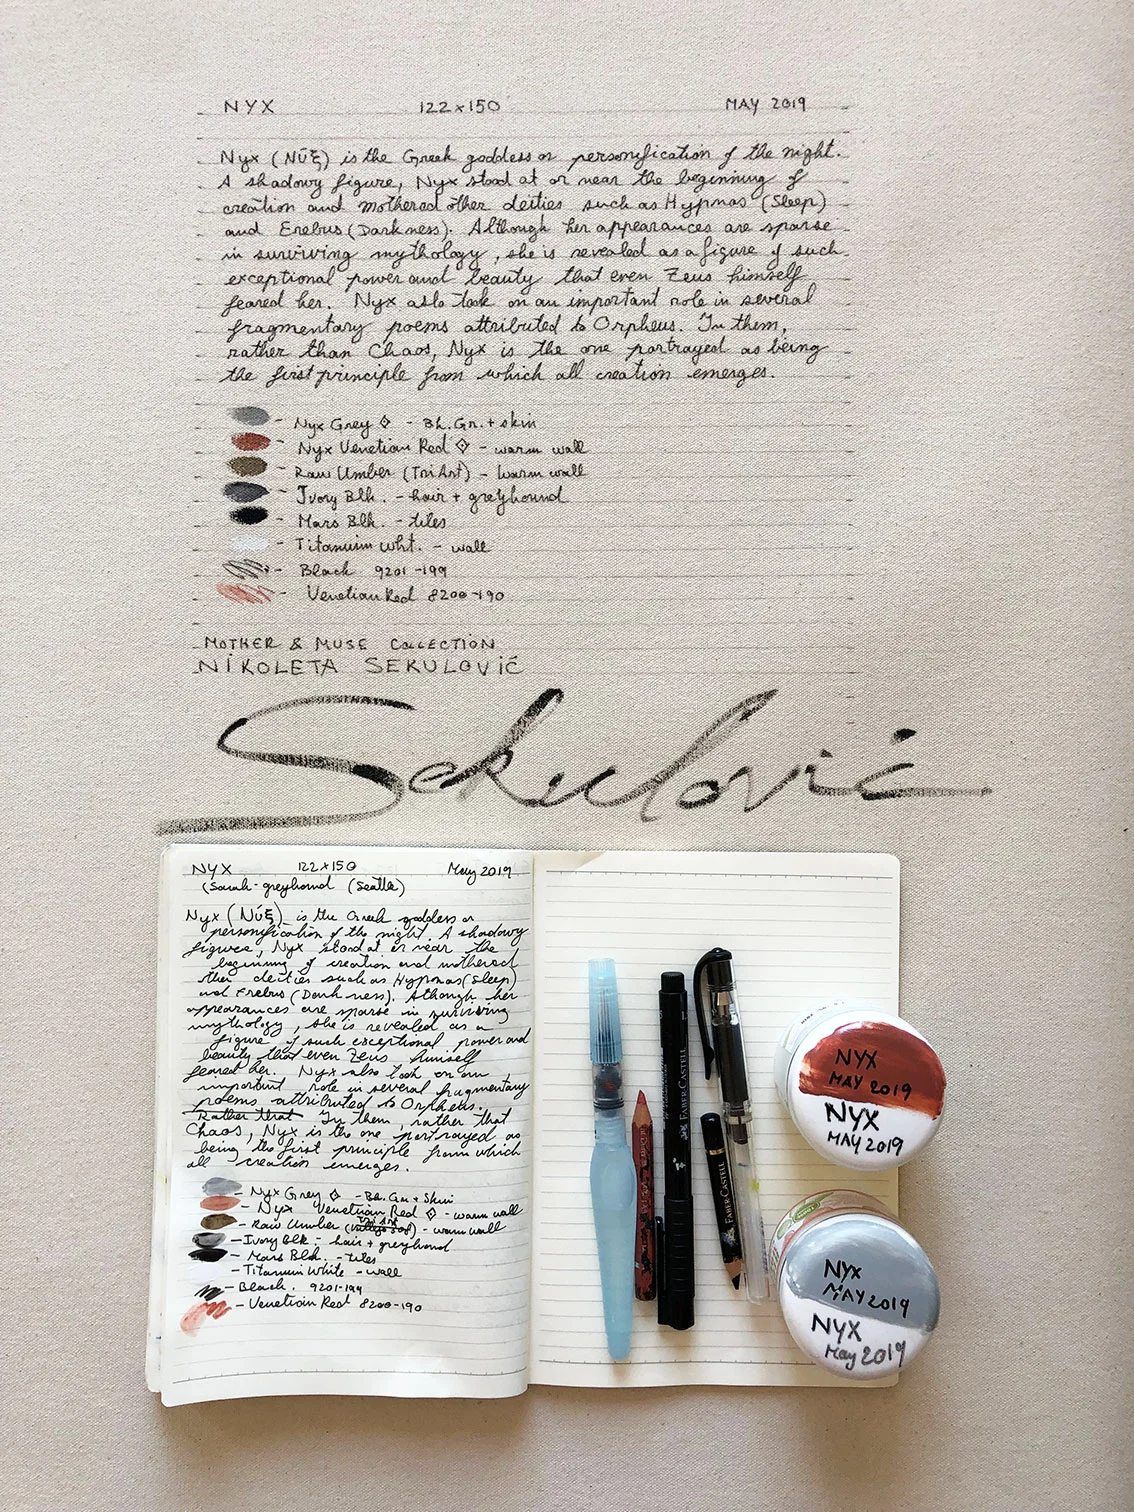 NYX 122x150 MAY 2019
Nyx (Νύξ) is the Greek goddess or personification of the night.
A shadowy figure, Nyx stood at or near the beginning of
creation and mothered other deities such as Hypnos (Sleep)
and Erebus (Darkness). Although her appearances are sparse
in surviving mythology, she is revealed as a figure of such
exceptional power and beauty that even Zeus himself
feared her. Nyx aslo took on an important role in several
fragmentary poems attributed to Orpheus. In them,
rather than Chaos, Nyx is the one portrayed as being
the first principle from which all creation emerges.
- Nyx Grey ◇ - Bh. Gr. + skin
- Nyx Venetian Red ◇ - warm wall
- Raw Umber (TriArt) - warm wall
- Ivory Blk. - hair + greyhound
- Mars Blk. - tiles
- Titanium Wht. - wall
- Black 9201-199
- Venetian Red 8200-190
MOTHER & MUSE COLLECTION
NIKOLETA SEKULOVIĆ
Sekulović
NYX 122x150 May 2019
(Sarah - greyhound (Seattle)
Nyx (Νύξ) is the Greek goddess or
personification of the night. A shadowy
figure, Nyx stood at or near the
beginning of creation and mothered
other deities such as Hypnos (Sleep)
and Erebus (Darkness). Although her
appearances are sparse in surviving
mythology, she is revealed as a
figure of such exceptional power and
beauty that even Zeus himself
feared her. Nyx also took on an
important role in several fragmentary
poems attributed to Orpheus.
Rather that In them, rather that
Chaos, Nyx is the one portrayed as
being the first principle from which
all creation emerges.
- Nyx Grey ◇ - Bh. Gr + Skin
- Nyx Venetian Red ◇ - warm wall
- Raw Umber (Tri Art) - warm wall
- Ivory Blk - hair + greyhound
- Mars Blk. - tiles
- Titanium White - wall
- Black. 9201-199
- Venetian Red 8200-190
FABER-CASTELL
FABER-CASTELL
NYX
MAY 2019
NYX
MAY 2019
NYX
MAY 2019
NYX
May 2019